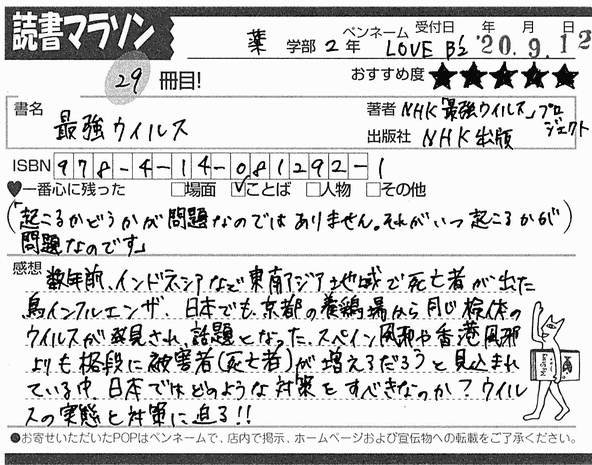 読書マラソン
薬 学部 2年
ペンネーム LOVE B'z
受付日 年 月 日
'20.9.12
29 冊目!
おすすめ度 ★★★★★
書名 最強ウイルス
著者 NHK「最強ウイルス」プロジェクト
出版社 NHK出版
ISBN 978-4-14-081292-1
♥一番心に残った □場面 ☑ことば □人物 □その他
(「起こるかどうかが問題なのではありません。それがいつ起こるかが
問題なのです」)
感想 数年前、インドネシアなど東南アジア地域で死亡者が出た
鳥インフルエンザ、日本でも京都の養鶏場から同じ検体の
ウイルスが発見され、話題となった。スペイン風邪や香港風邪
よりも格段に被害者(死亡者)が増えるだろうと見込まれ
ている中、日本ではどのような対策をすべきなのか?ウイル
スの実態と対策に迫る!!
●お寄せいただいたPOPはペンネームで、店内で掲示、ホームページおよび宣伝物への転載をご了承ください。